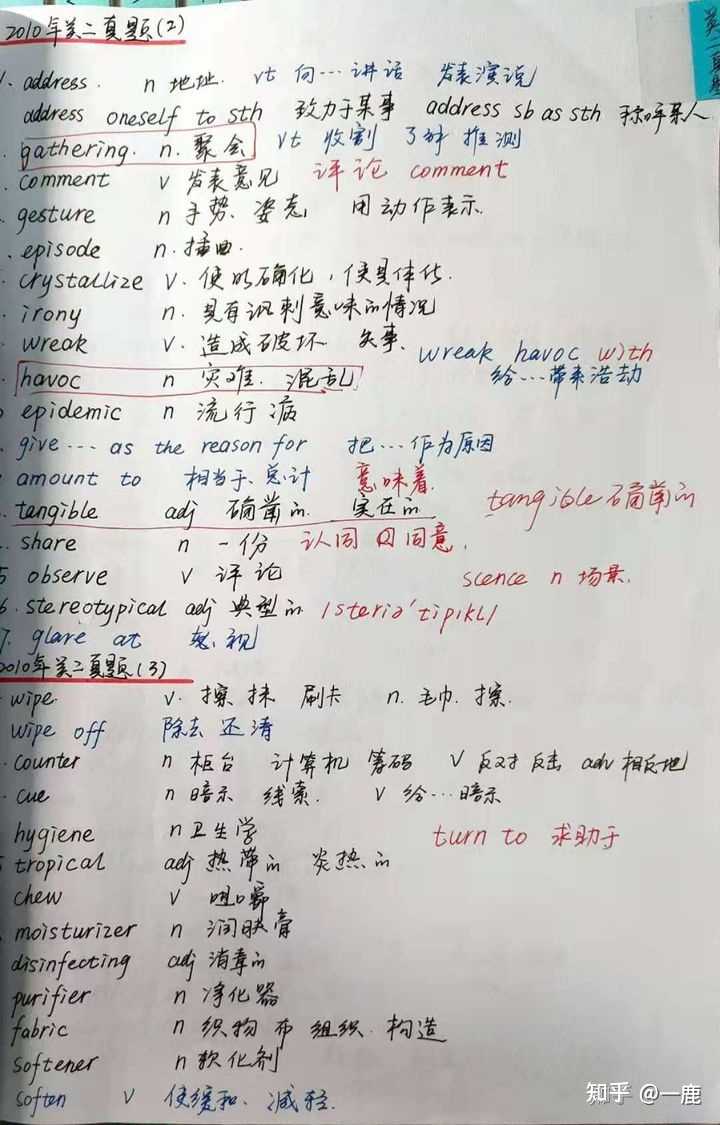 2010年英二真题(2)
1. address. n 地址. vt 向…讲话 发表演说
address oneself to sth 致力于某事 address sb as sth 称呼某人
gathering. n. 聚会 vt 收割 了解 推测
comment v 发表意见 评论 comment
gesture n 手势. 姿态 用动作表示.
episode n. 插曲.
crystallize v. 使明确化, 使具体化.
irony n. 具有讽刺意味的情况
wreak v. 造成破坏 失事. wreak havoc with
havoc n 灾难. 混乱 给…带来浩劫
epidemic n 流行病
give … as the reason for 把…作为原因
amount to 相当于、总计 意味着.
tangible adj 确凿的. 实在的 tangible 确凿的
share n 一份 认同 同意.
5 observe v 评论 scence n 场景.
6. stereotypical adj 典型的 /steriə'tipikl/
7. glare at 怒视
2010年英二真题(3)
wipe. v. 擦 抹 刷卡 n. 毛巾. 擦.
wipe off 除去 还清
counter n 柜台 计算机 筹码 v 反对 反击 adv 相反地
cue n 暗示 线索. v 给…暗示
hygiene n 卫生学 turn to 求助于
tropical adj 热带的 炎热的
chew v 咀嚼
moisturizer n 润肤膏
disinfecting adj 消毒的
purifier n 净化器
fabric n 织物 布 组织. 构造
softener n 软化剂
soften v 使缓和. 减轻.
知乎 @一鹿